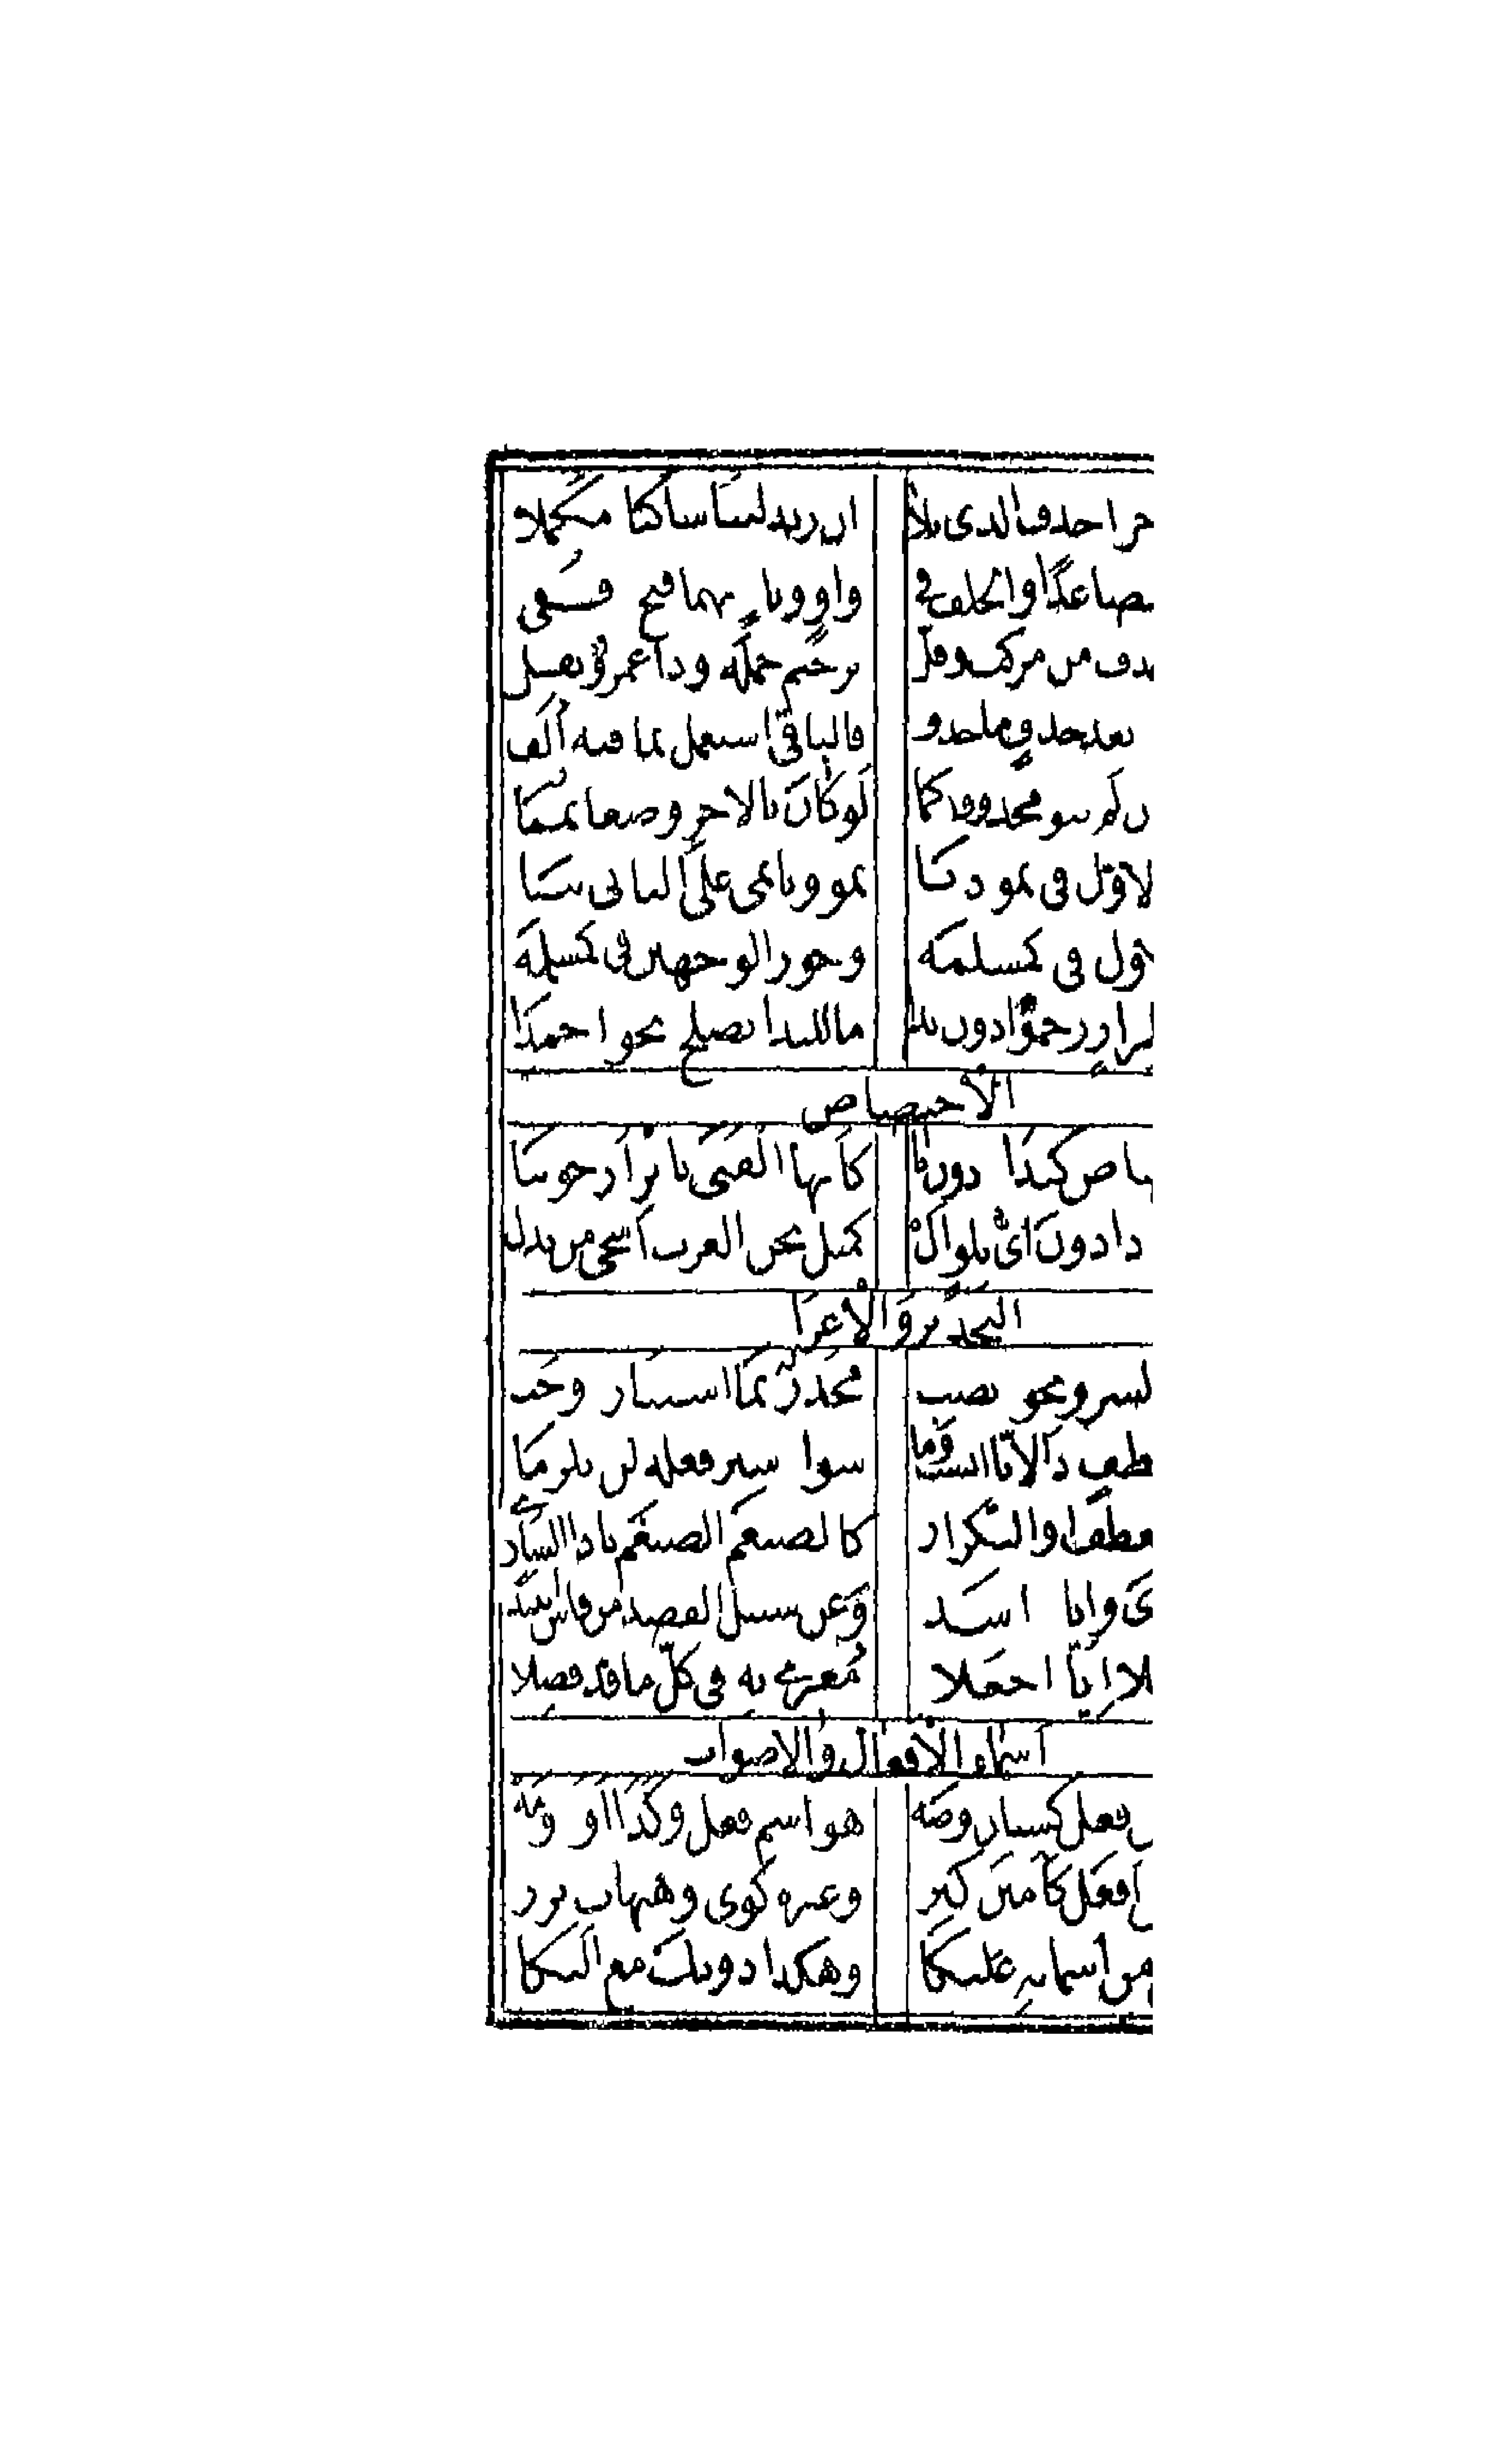 خرا احذف الذي تلا ان زيد لينا ساكنا مكملا
صاعدا والخلف في واو وياء بهما فتح قفي
من مركب وقل ترخيم جملة وذا عمرو نقل
بعد حذف ما حذف فالباقي استعمل بما فيه ألف
لم ينو محذوف كما لو كان بالآخر وضعا تمما
الاول في ثمود يا ثمو ويا ثمى على الثاني بيا
في كمسلمه وجوز الوجهين في كمسلمه
رخموا دون ندا ما للندا يصلح نحو احمدا
الاختصاص
كندا دون يا كأيها الفتى باثر ارجونيا
ذا دون أي تلو ال كمثل نحن العرب أسخى من بذل
التحذير والاغرا
الشر ونحو نصب محذر بما استتار وجب
ذا لايا انسب وما سواه ستر فعله لن يلزما
العطف او التكرار كالضيغم الضيغم ياذا الساري
وايا اشذ وعن سبيل القصد من قاس انتبذ
بلا ايا اجعلا مغرى به في كل ما قد فصلا
اسماء الافعال والاصوات
فعل كشتان وصه هو اسم فعل وكذا اوه ومه
افعل كآمين كثر وغيره كوى وهيهات نزر
من اسمائه عليكا وهكذا دونك مع اليكا